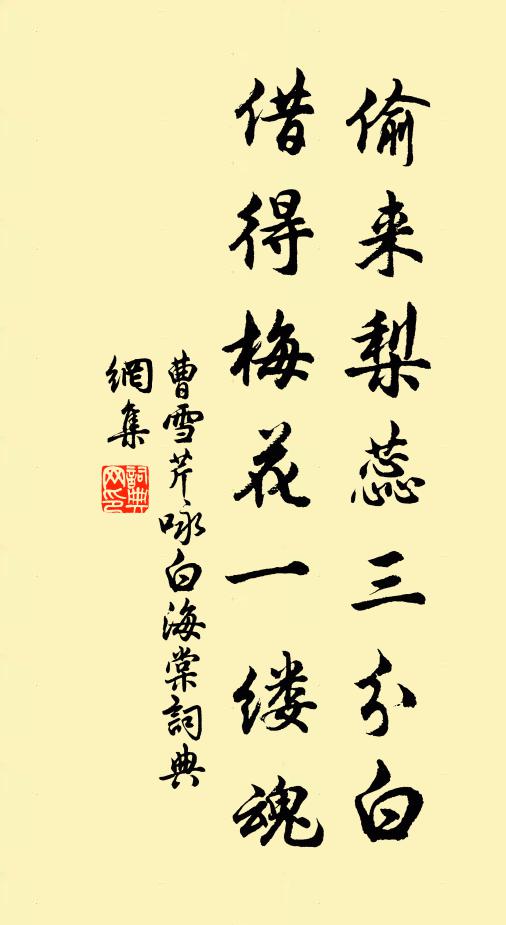 偷来梨蕊三分白
借得梅花一缕魂
曹雪芹咏白海棠詞典
網集
詞典
网印